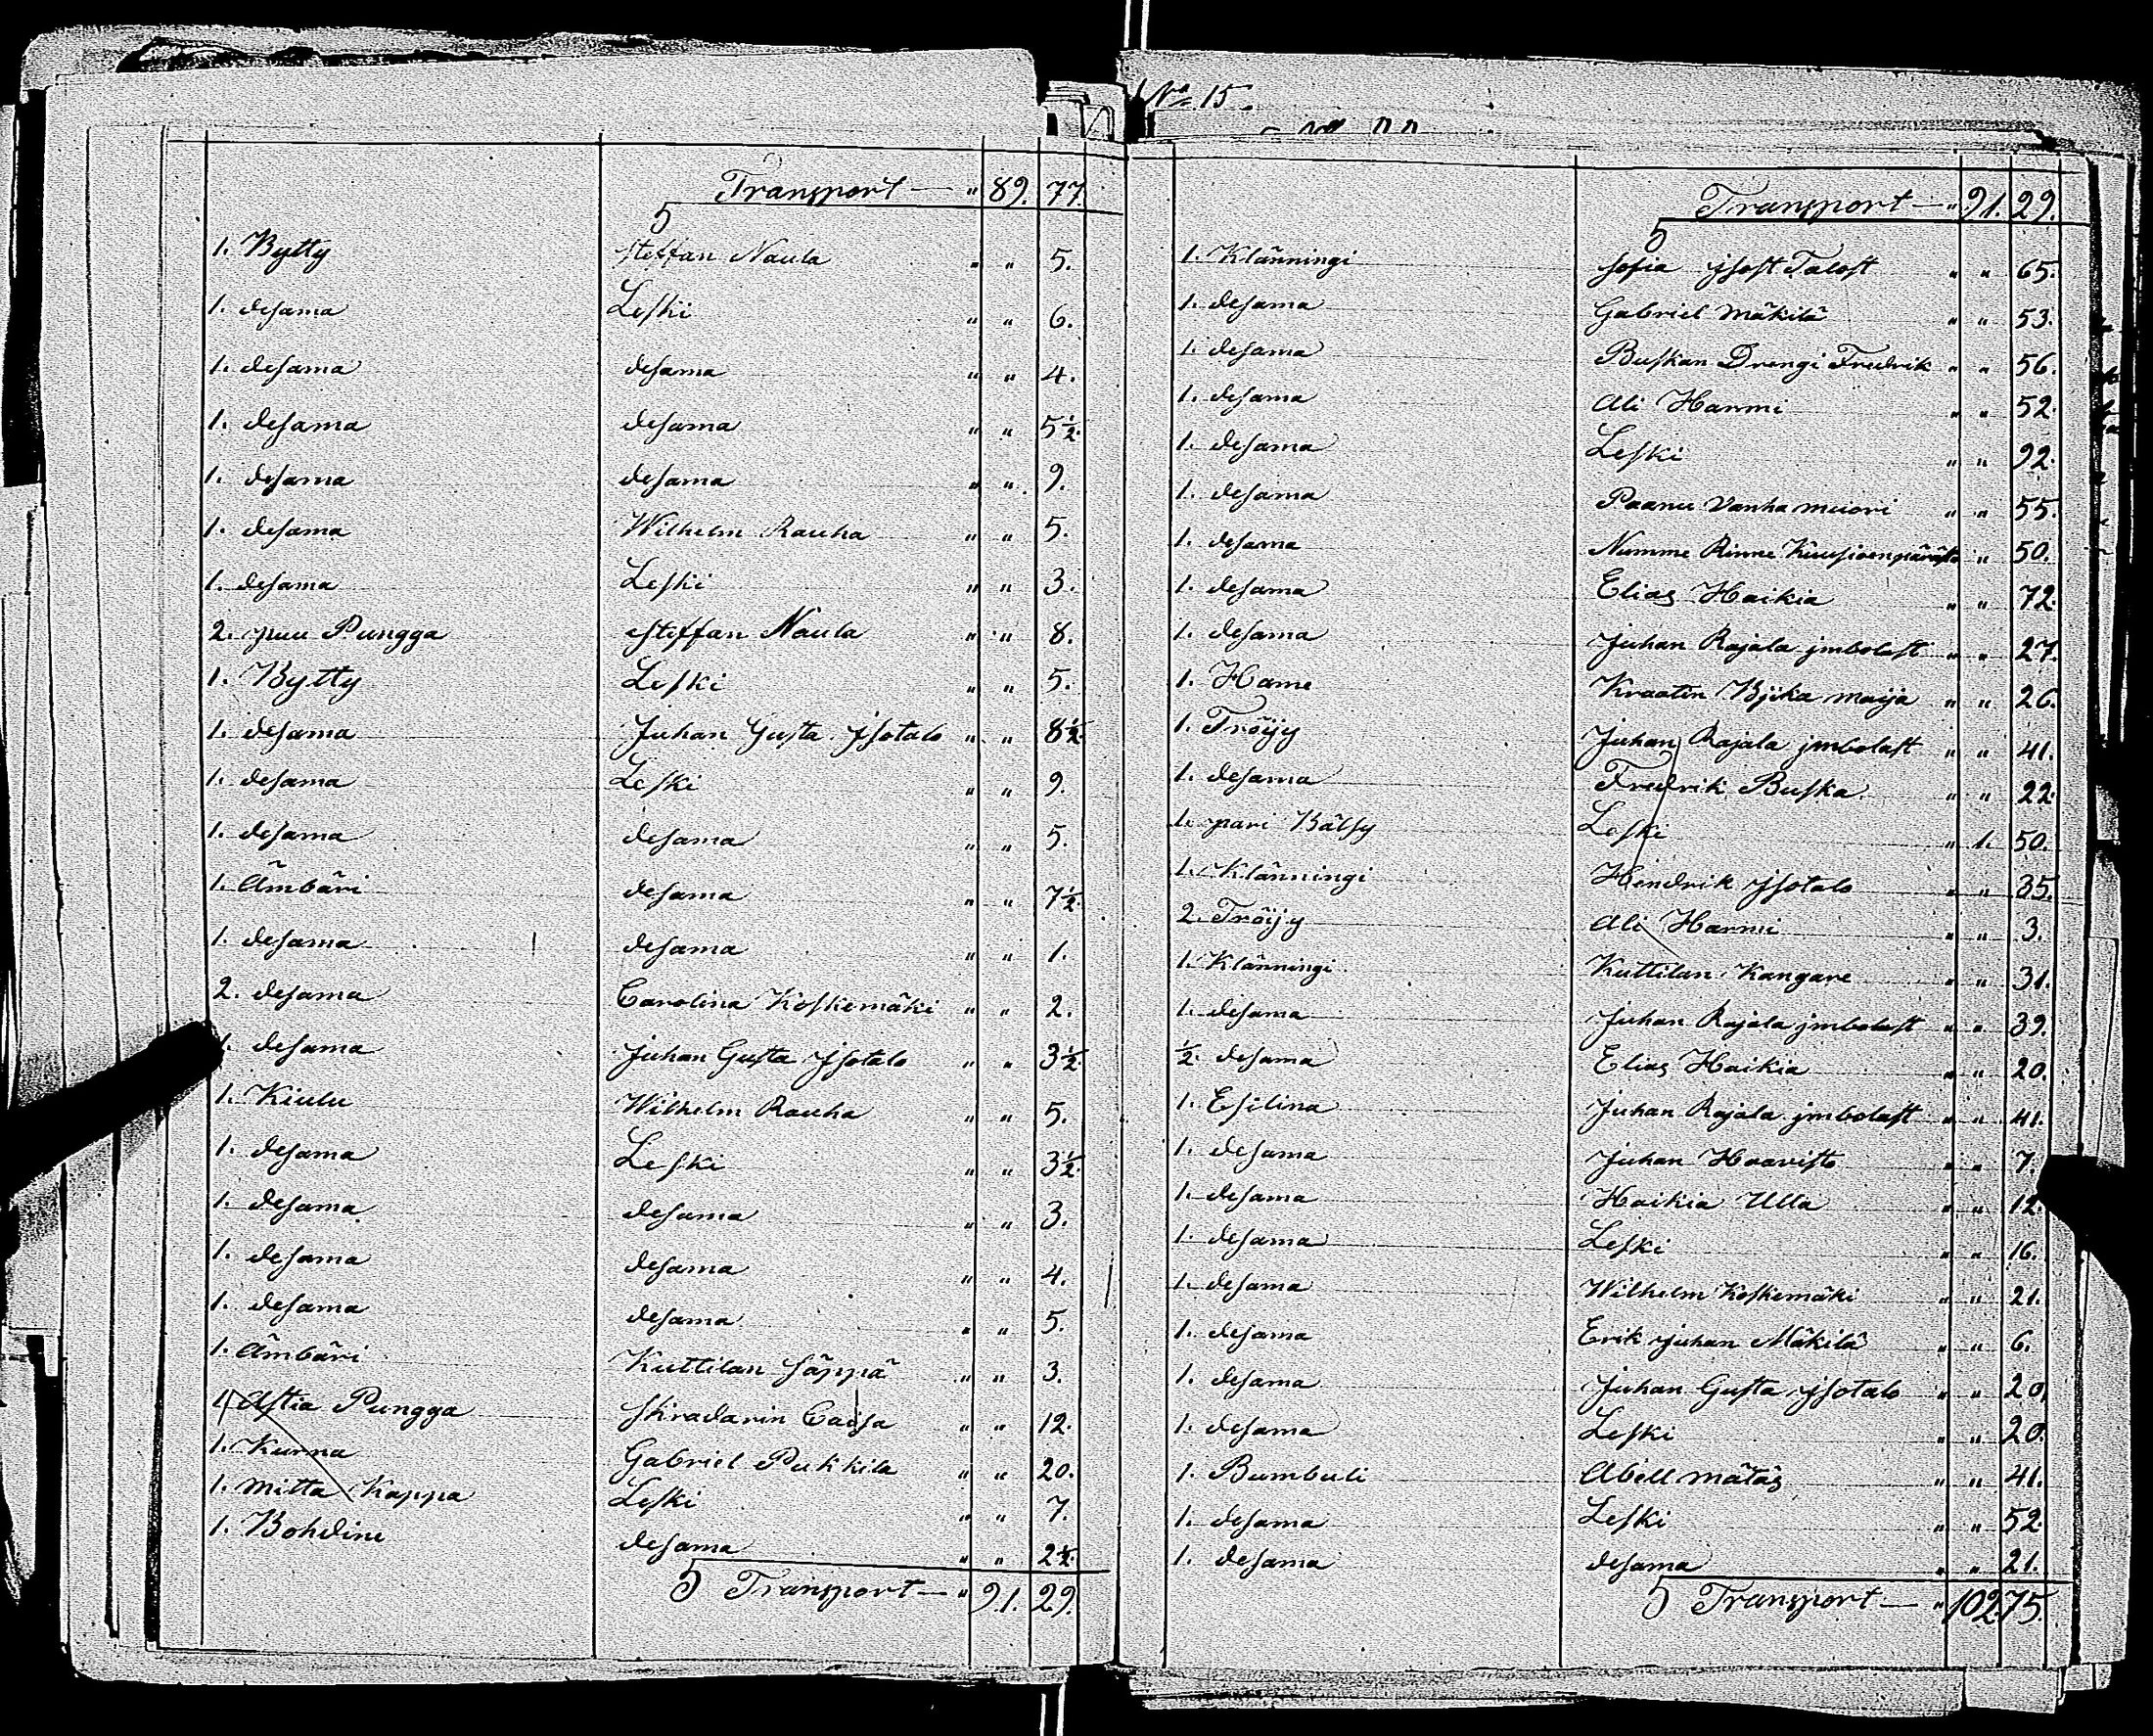 Transport — " 89. 77.
5
1. Bytty Steffan Naula " " 5.
1. desama Leski " " 6.
1. desama desama " " 4.
1. desama desama " " 5½.
1. desama desama " " 9.
1. desama Wilhelm Rauha " " 5.
1. desama Leski " " 3.
2. puu Pungga Steffan Naula " " 8.
1. Bytty Leski " " 5.
1. desama Juhan Gusta Jsotalo " " 8½.
1. desama Leski " " 9.
1. desama desama " " 5.
1. Ämbäri desama " " 7½.
1. desama desama " " 1.
2. desama Carolina Koskemäki " " 2.
1. desama Juhan Gusta Jsotalo " " 3½.
1. Kiulu Wilhelm Rauha " " 5.
1. desama Leski " " 3½.
1. desama desama " " 3.
1. desama desama " " 4.
1. desama desama " " 5.
1. Ämbäri Kuttilan Säppä " " 3.
1. Astia Pungga Skradarin Caisa " " 12.
1. Kurna Gabriel Pukkila " " 20.
1. mitta Kappa Leski " " 7.
1. Bohdine desama " " 2½.
5 Transport — " 91. 29.
No 15.
Transport — " 91. 29.
5
1. Klänningi Sofia Jsost Talost " " 65.
1. desama Gabriel Mäkilä " " 53.
1. desama Buskan Drengi Fredrik " " 56.
1. desama Ali Harmi " " 52.
1. desama Leski " " 92.
1. desama Paanu Vanha muori " " 55.
1. desama Numme Rinne " 50.
1. desama Elias Haikia " " 72.
1. desama Juhan Rajala jmbolast " " 27.
1. Hame Kraatin Bjika maija " " 26.
1. Tröijy Juhan Rajala jmbolast " " 41.
1. desama Fredrik Buska " " 22.
1. pari Bälsy Leski " 1. 50.
1. Klänningi Hendrik Jsotalo " " 35.
2. Tröijy Ali Harmi " " 3.
1. Klänningi Kuttilan Kangare " " 31.
1. desama Juhan Rajala jmbolast " " 39.
½. desama Elias Haikia " " 20.
1. Esilina Juhan Rajala jmbolast " " 41.
1. desama Juhan Haavisto " " 7.
1. desama Haikia Ulla " " 12.
1. desama Leski " " 16.
1. desama Wilhelm Koskemäki " " 21.
1. desama Erik Juhan Mäkilä " " 6.
1. desama Juhan Gusta Jsotalo " " 20.
1. desama Leski " " 20.
1. Bumbuli Abell mätäs " " 41.
1. desama Leski " " 52.
1. desama desama " " 21.
5 Transport — " 102. 75.